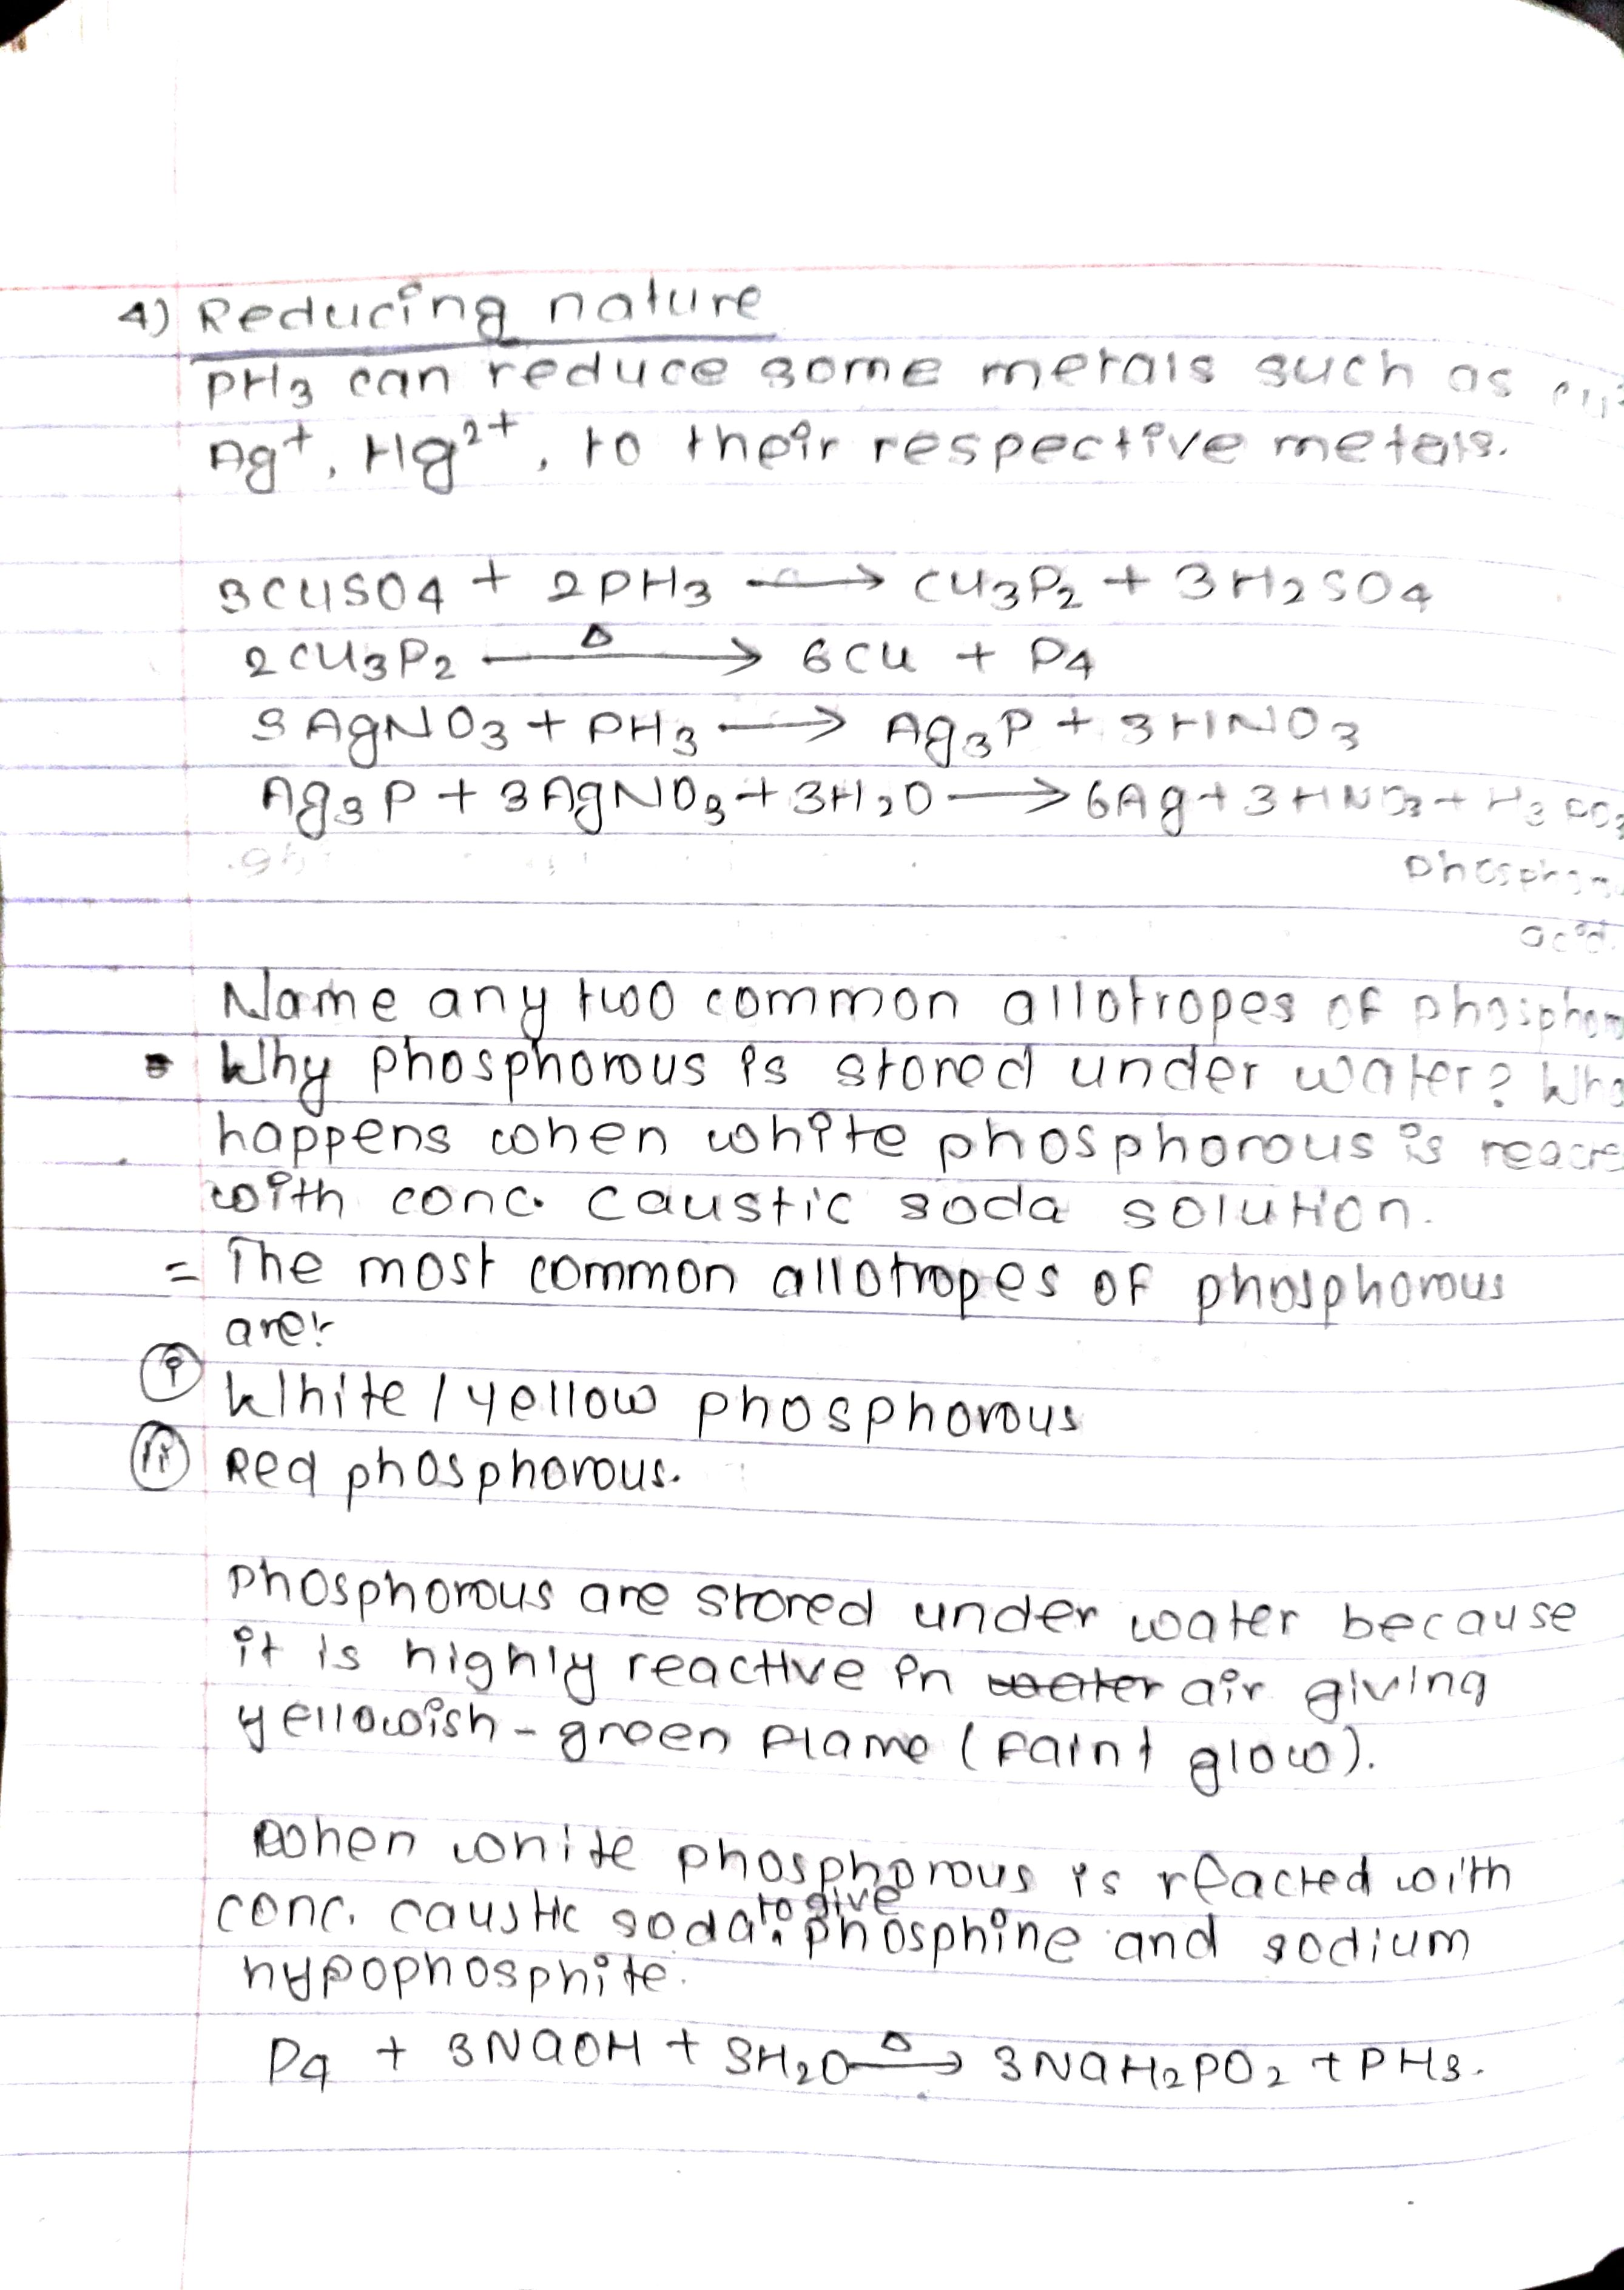 4) Reducing nature
PH3 can reduce some metals such as
Ag+, Hg2+, to their respective metals.
3CuSO4 + 2PH3 → Cu3P2 + 3H2SO4
2Cu3P2 Δ→ 6Cu + P4
3AgNO3 + PH3 → Ag3P + 3HNO3
Ag3P + 3AgNO3 + 3H2O → 6Ag + 3HNO3 + H3PO3
acid.
Name any two common allotropes of
Why phosphorous is stored under water?
happens when white phosphorous is
with conc. caustic soda solution.
= The most common allotropes of phosphorous
are:
(i) White / yellow phosphorous
(ii) Red phosphorous.
phosphorous are stored under water because
it is highly reactive in water air giving
yellowish-green flame (faint glow).
When white phosphorous is reacted with
conc. caustic soda. to give phosphine and sodium
hypophosphite.
P4 + 3NaOH + 3H2O Δ→ 3NaH2PO2 + PH3.